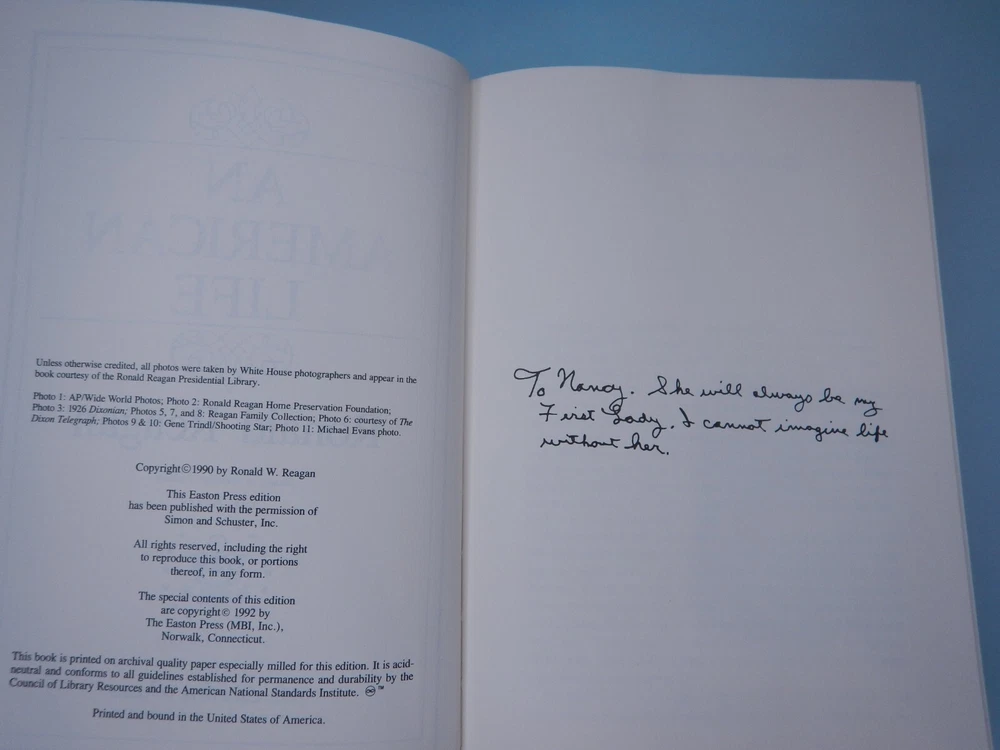 AN
AMERICAN
LIFE
Unless otherwise credited, all photos were taken by White House photographers and appear in the
book courtesy of the Ronald Reagan Presidential Library.
Photo 1: AP/Wide World Photos; Photo 2: Ronald Reagan Home Preservation Foundation;
Photo 3: 1926 Dixonian; Photos 5, 7, and 8: Reagan Family Collection; Photo 6: courtesy of The
Dixon Telegraph; Photos 9 & 10: Gene Trindl/Shooting Star; Photo 11: Michael Evans photo.
Copyright©1990 by Ronald W. Reagan
This Easton Press edition
has been published with the permission of
Simon and Schuster, Inc.
All rights reserved, including the right
to reproduce this book, or portions
thereof, in any form.
The special contents of this edition
are copyright© 1992 by
The Easton Press (MBI, Inc.),
Norwalk, Connecticut.
This book is printed on archival quality paper especially milled for this edition. It is acid-
neutral and conforms to all guidelines established for permanence and durability by the
Council of Library Resources and the American National Standards Institute. ♾™
Printed and bound in the United States of America.
To Nancy. She will always be my
First Lady. I cannot imagine life
without her.